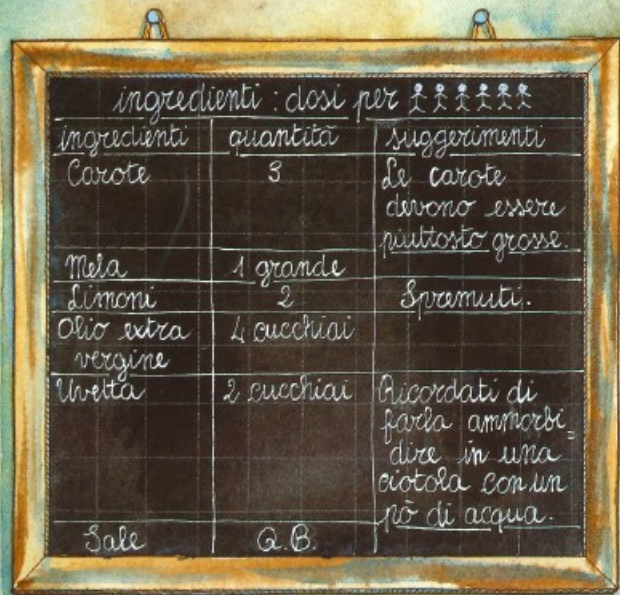 ingredienti : dosi per
ingredienti quantità suggerimenti
Carote 3 Le carote
devono essere
piuttosto grosse.
Mela 1 grande
Limoni 2 Spremuti.
Olio extra 4 cucchiai
vergine
Uvetta 2 cucchiai Ricordati di
farla ammorbi=
dire in una
ciotola con un
pò di acqua.
Sale Q.B.